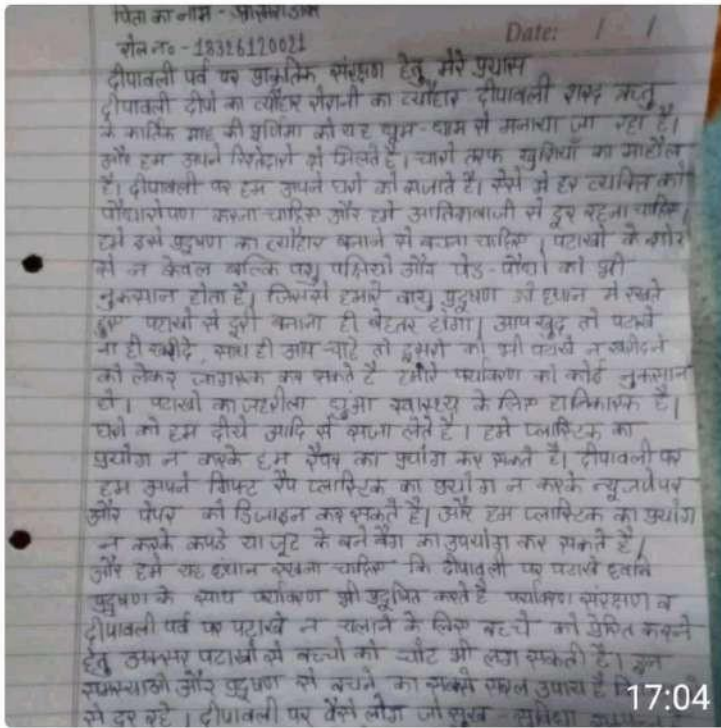 पिता का नाम -
रोल न० - 18326120021
Date: / /
दीपावली पर्व पर प्राकृतिक संरक्षण हेतु मेरे प्रयास
दीपावली दीपो का त्यौहार रोशनी का त्यौहार दीपावली शरद ऋतु
के कार्तिक माह की पूर्णिमा को यह धूम-धाम से मनाया जा रहा है।
और हम अपने रिश्तेदारो से मिलते है। चारो तरफ खुशियाँ का माहौल
है। दीपावली पर हम अपने घरो को सजाते है। ऐसे मे हर व्यक्ति को
पौधारोपण करना चाहिए और हमे आतिशबाजी से दूर रहना चाहिए।
हमे इसे प्रदुषण का त्यौहार बनाने से बचना चाहिए। पटाखो के शोर
से न केवल बल्कि पशु पक्षियो और पेड-पौधो को भी
नुकसान होता है। जिससे हमारे वायु प्रदुषण को ध्यान मे रखते
हुए पटाखो से दुरी बनाना ही बेहतर होगा। आप खुद तो पटाखे
ना ही खरीदे, साथ ही आप चाहे तो दुसरो को भी पटाखे न खरीदने
को लेकर जागरूक कर सकते है हमारे पर्यावरण को कोई नुकसान
हो। पटाखो का जहरीला धुआ स्वास्थ्य के लिए हानिकारक है।
घरो को हम दीये आदि से सजा लेते है। हमे प्लास्टिक का
प्रयोग न करके हम पेपर का प्रयोग कर सकते है। दीपावली पर
हम अपने गिफ्ट रैप प्लास्टिक का प्रयोग न करके न्यूजपेपर
और पेपर को डिजाइन कर सकते है। और हम प्लास्टिक का प्रयोग
न करके कपडे या जूट के बने बैग का उपयोग कर सकते है।
और हमे यह ध्यान रखना चाहिए कि दीपावली पर पटाखे ध्वनि
प्रदुषण के साथ पर्यावरण भी प्रदूषित करते है पर्यावरण संरक्षण व
दीपावली पर्व पर पटाखे न चलाने के लिए बच्चे को प्रेरित करने
हेतु अक्सर पटाखो से बच्चो को चोट भी लग सकती है। इन
समस्याओ और प्रदुषण से बचने का सबसे सरल उपाय है कि
से दूर रहे। दीपावली पर वैसे लोग जो सुख - सुविधा
17:04